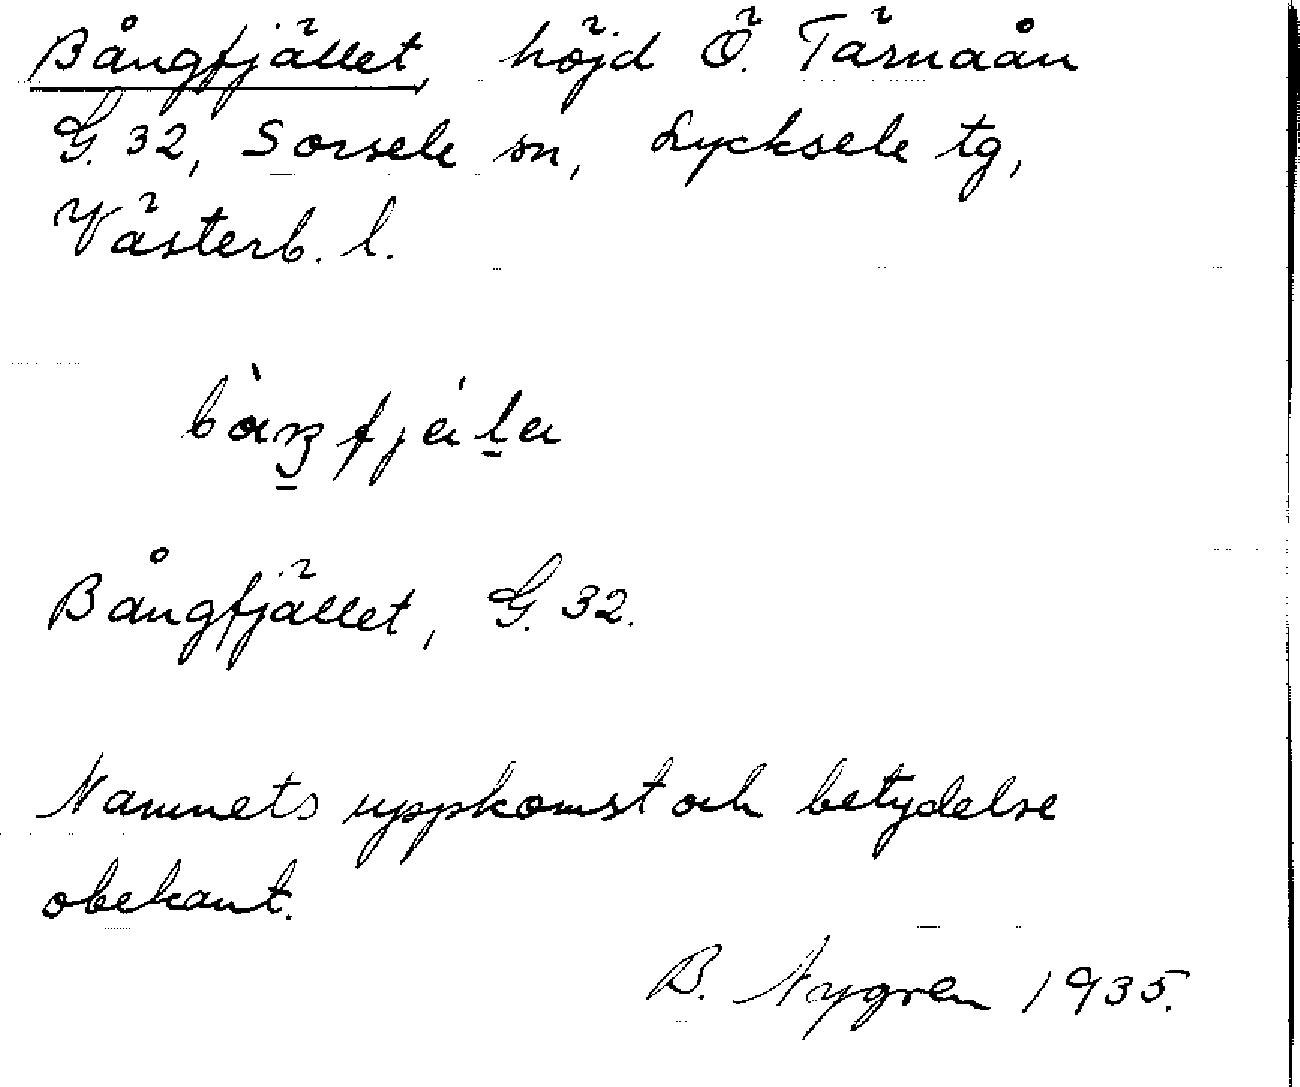 Bångfjället, höjd Ö. Tärnaån
G. 32, Sorsele sn, Lycksele tg,
Västerb. l.
Bångfjället, G. 32.
Namnets uppkomst och betydelse
obekant.
B. Nygren 1935.